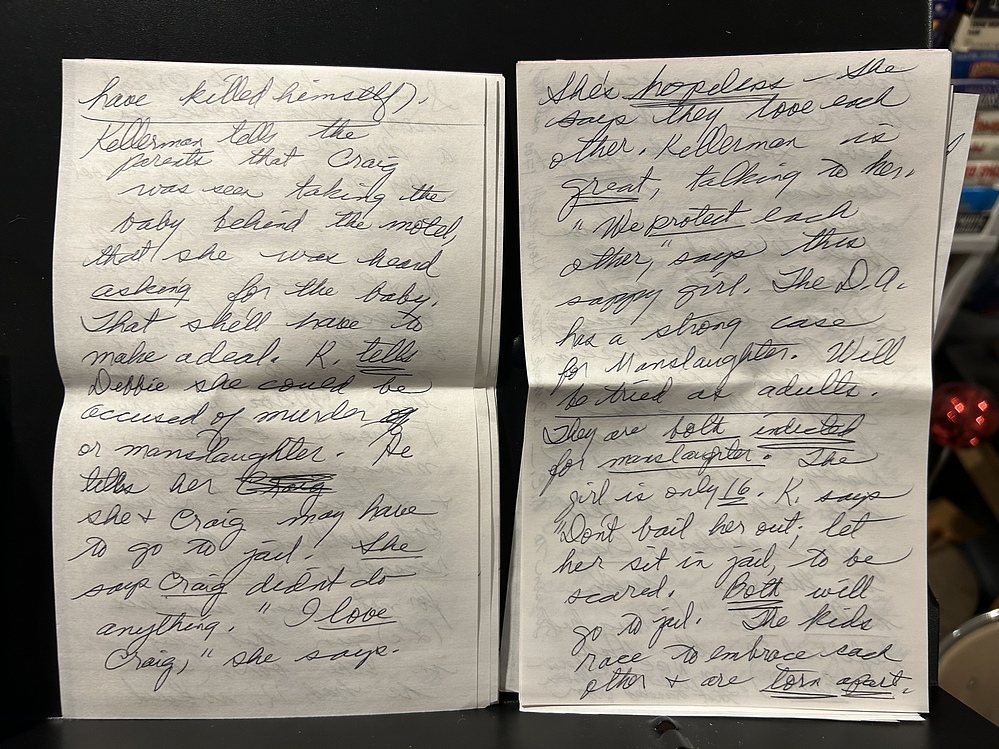 have killed himself).
Kellerman tells the
parents that Craig
was seen taking the
baby behind the motel,
that she was heard
asking for the baby.
That she'll have to
make a deal. K. tells
Debbie she could be
accused of murder
or manslaughter. He
tells her Craig
she & Craig may have
to go to jail. She
says Craig didn't do
anything. "I love
Craig," she says.
She's hopeless – She
says they love each
other. Kellerman is
great, talking to her.
"We protect each
other," says this
sappy girl. The D.A.
has a strong case
for Manslaughter. Will
be tried as adults.
They are both indicted
for manslaughter. The
girl is only 16. K. says
"Don't bail her out; let
her sit in jail, to be
scared. Both will
go to jail. The kids
race to embrace each
other & are torn apart.